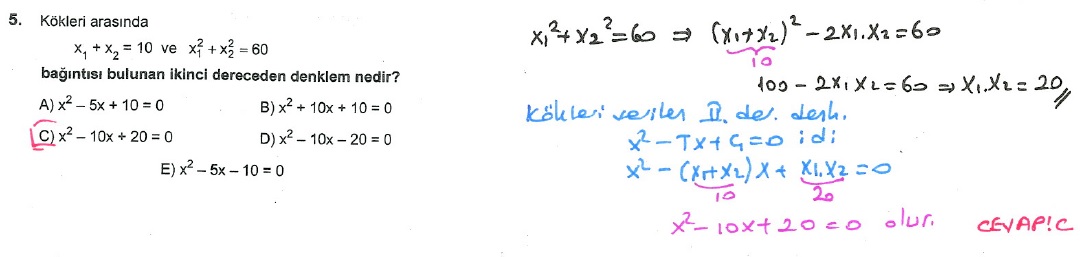 5. Kökleri arasında
x₁ + x₂ = 10 ve x₁² + x₂² = 60
bağıntısı bulunan ikinci dereceden denklem nedir?
A) x² – 5x + 10 = 0 B) x² + 10x + 10 = 0
C) x² – 10x + 20 = 0 D) x² – 10x – 20 = 0
E) x² – 5x – 10 = 0
x₁² + x₂² = 60 ⇒ (x₁+x₂)² – 2x₁.x₂ = 60
10
100 – 2x₁x₂ = 60 ⇒ x₁.x₂ = 20
Kökleri verilen II. der. denk.
x² – Tx + Ç = 0 idi
x² – (x₁+x₂)x + x₁.x₂ = 0
10 20
x² – 10x + 20 = 0 olur.
CEVAP: C